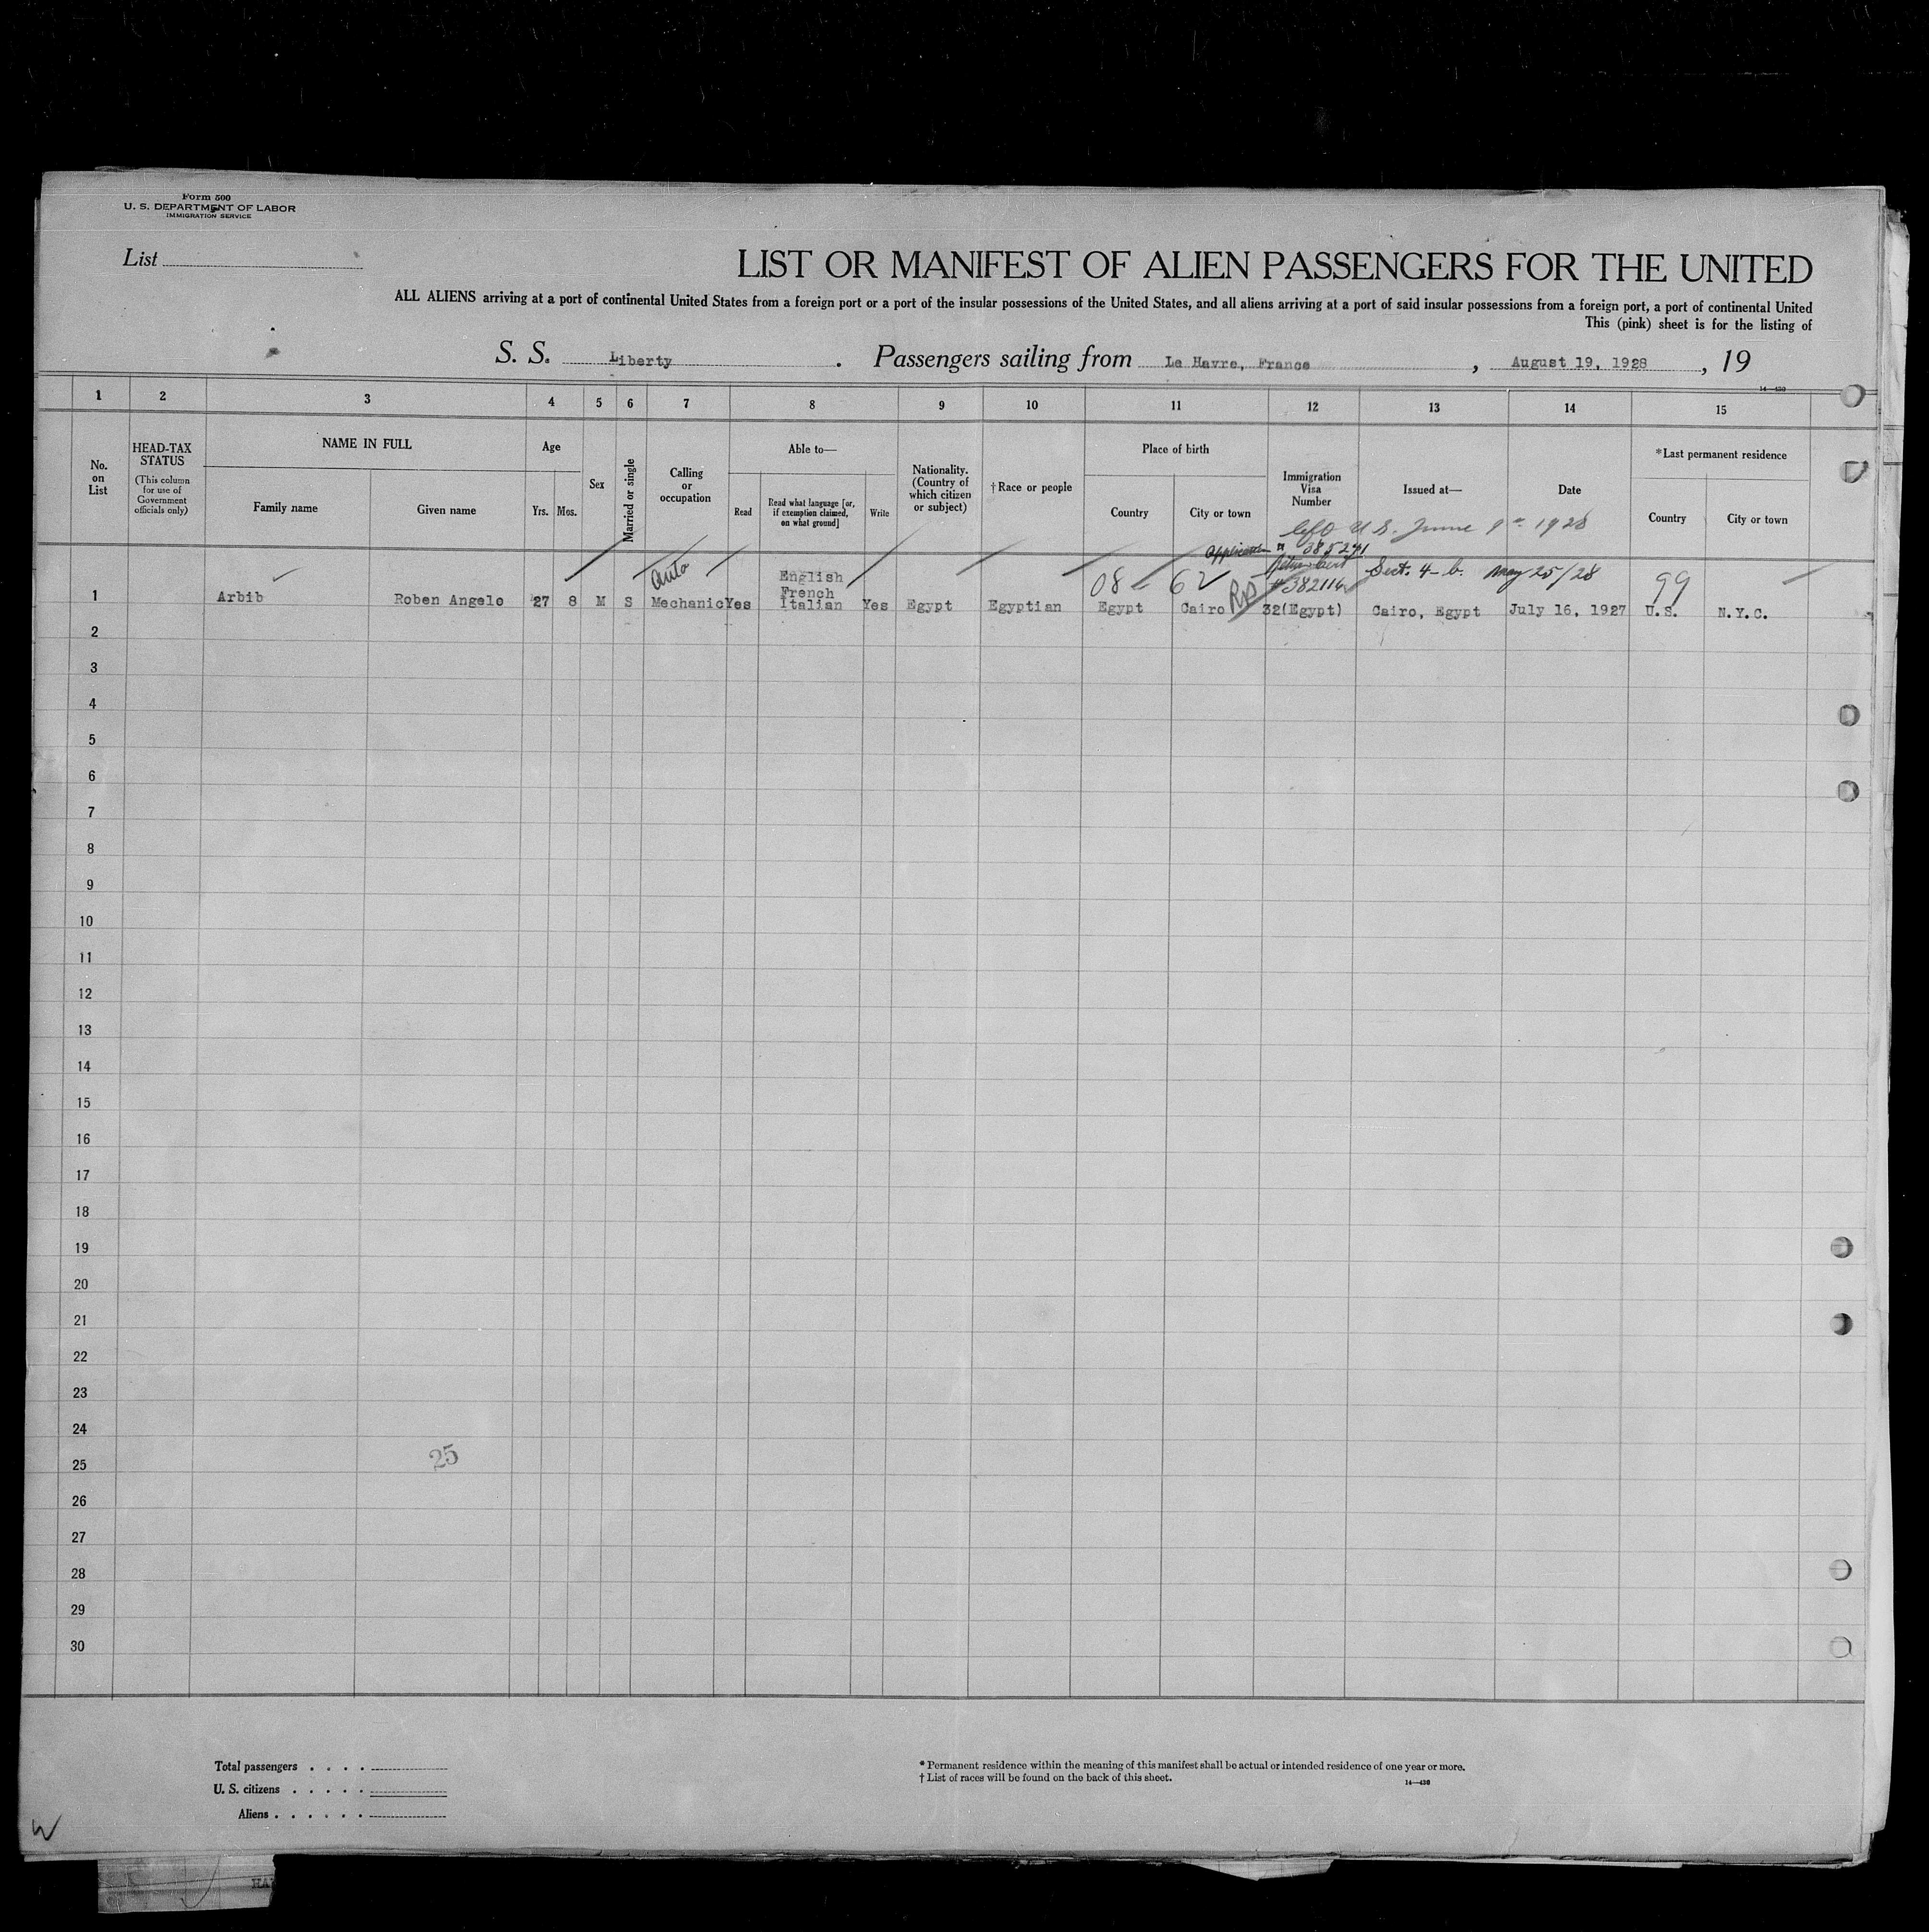 Form 500
U. S. DEPARTMENT OF LABOR
IMMIGRATION SERVICE
List
LIST OR MANIFEST OF ALIEN PASSENGERS FOR THE UNITED
ALL ALIENS arriving at a port of continental United States from a foreign port or a port of the insular possessions of the United States, and all aliens arriving at a port of said insular possessions from a foreign port, a port of continental United
This (pink) sheet is for the listing of
S. S. Liberty . Passengers sailing from Le Havre, France , August 19, 1928 , 19
14—430
1 2 3 4 5 6 7 8 9 10 11 12 13 14 15
No. on List
HEAD-TAX STATUS
(This column for use of Government officials only)
NAME IN FULL
Family name Given name
Age
Yrs. Mos.
Sex
Married or single
Calling or occupation
Able to—
Read
Read what language [or, if exemption claimed, on what ground]
Write
Nationality. (Country of which citizen or subject)
†Race or people
Place of birth
Country City or town
Immigration Visa Number
Issued at—
Date
*Last permanent residence
Country City or town
left U.S. June 9 1928
Application 385241
#382114 Sect. 4-b. May 25/28
08 62 99
Auto
English
French
1 Arbib Roben Angelo 27 8 M S Mechanic Yes Italian Yes Egypt Egyptian Egypt Cairo 32(Egypt) Cairo, Egypt July 16, 1927 U.S. N.Y.C.
2
3
4
5
6
7
8
9
10
11
12
13
14
15
16
17
18
19
20
21
22
23
24
25
25
26
27
28
29
30
Total passengers . . . .
U. S. citizens . . . . .
Aliens . . . . . .
* Permanent residence within the meaning of this manifest shall be actual or intended residence of one year or more.
† List of races will be found on the back of this sheet.
14—430